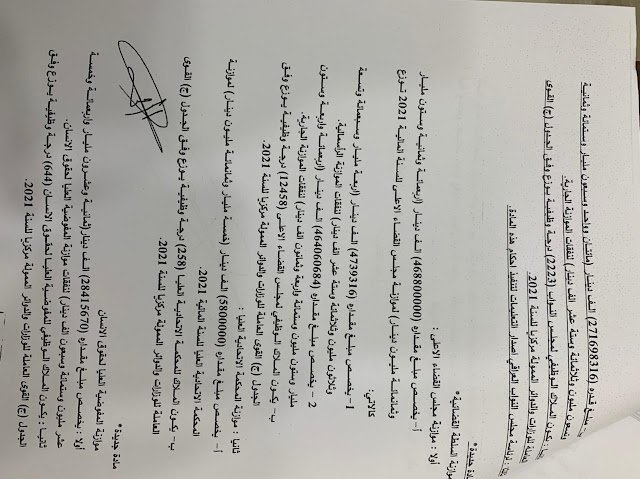 مبلغ قدره (271698316) الف دينار (مائتان وواحد وسبعون مليار وستمائة وثمانية
وتسعون مليون وثلاثمائة وستة عشر الف دينار) لنفقات الموازنة الجارية.
يكون الملاك الوظيفي لمجلس النواب (2223) درجة وظيفية يوزع وفق الجدول (ج) القوى
العاملة للوزارات والدوائر الممولة مركزيا للسنة 2021.
: لرئاسة مجلس النواب العراقي اصدار التعليمات لتنفيذ احكام هذه المادة.
مادة جديدة*
موازنة السلطة القضائية*
أولا : موازنة مجلس القضاء الاعلى :
أ- يخصص مبلغ مقداره (468800000) الف دينار (اربعمائة وثمانية وستون مليار
وثمانمائة مليون دينار) لموازنة مجلس القضاء الاعلى للسنة المالية 2021 توزع
كالاتي:
1- يخصص مبلغ مقداره (4739316) الف دينار (اربعة مليار وسبعمائة وتسعة
وثلاثون مليون وثلاثمائة وستة عشر الف دينار) لنفقات الموازنة الرأسمالية.
2 - يخصص مبلغ مقداره (464060684) الف دينار (اربعمائة واربعة وستون
مليار وستون مليون وستمائة واربعة وثمانون الف دينار) لنفقات الموازنة الجارية.
ب- يكون الملاك الوظيفي لمجلس القضاء الاعلى (12458) درجة وظيفية يوزع وفق
الجدول (ج) القوى العاملة للوزارات والدوائر الممولة مركزيا للسنة 2021.
ثانيا : موازنة المحكمة الاتحادية العليا :
أ- يخصص مبلغ مقداره (5800000) الف دينار (خمسة مليار وثمانمائة مليون دينار) لموازنة
المحكمة الاتحادية العليا للسنة المالية 2021.
ب- يكون الملاك للمحكمة الاتحادية العليا (258) درجة وظيفية يوزع وفق الجدول (ج) القوى
العاملة للوزارات والدوائر الممولة مركزيا للسنة 2021.
مادة جديدة*
موازنة المفوضية العليا لحقوق الانسان
أولا : يخصص مبلغ مقداره (28415670) الف دينار (ثمانية وعشرون مليار واربعمائة وخمسة
عشر مليون وستمائة وسبعون الف دينار) لنفقات موازنة المفوضية العليا لحقوق الانسان.
ثانيا : يكون الملاك الوظيفي للمفوضية العليا لحقوق الانسان (644) درجة وظيفية يوزع وفق
الجدول (ج) القوى العاملة للوزارات والدوائر الممولة مركزيا للسنة 2021.